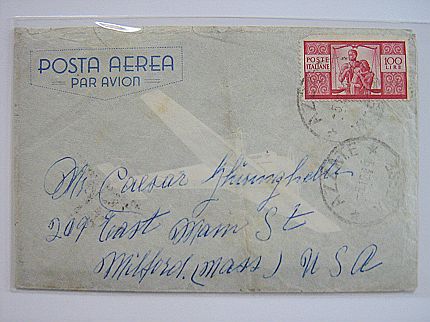 POSTA AEREA
PAR AVION
POSTE ITALIANE
100 LIRE
AZZATE
Mr Caesar Ghiringhelli
209 East Main St
Milford, (Mass) USA